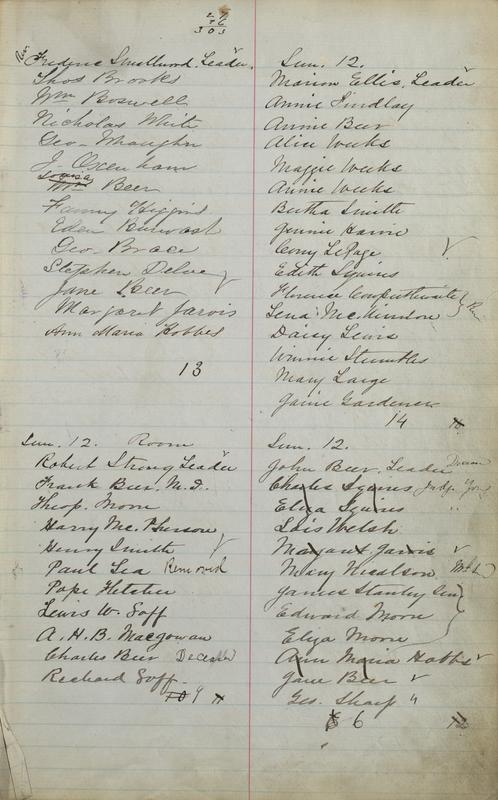 27
76
303
Rev.
Frederic Smallwood. Leader.
Thos Brooks
Wm Boswell
Nicholas White
Geo- Maughn
J. Oxenham
Louisa
Mrs Beer
Fanny Higgins
Eden
Geo- Brace
Stephen
Jane Beer
Margaret Jarvis
Ann Maria Hobbes
13
Sun. 12. Room
Robert Strong Leader
Frank Beer. M.D.
Theop. Moore
Harry McPherson
Henry Smith
Paul Lea Removed
Pope Fletcher
Lewis W. Goff
A. H. B. Macgowan
Charles Beer
Richard Goff-
10 9 11
Sun. 12.
Marion Ellis. Leader
Annie Findlay
Annie Beer
Alice Weeks
Maggie Weeks
Annie Weeks
Bertha Smith
Jennie Harvie
LePage
Edith Squires
Florence
Lena McKinnon
Daisy Lewis
Winnie Stumbles
Mary Large
Janie Gardener
14
Sun. 12.
John Beer. Leader
Charles Squires
Eliza Squires
Lois Welsh
Margaret Jarvis
Mary
James Stanley Sen
Edward Moore
Eliza Moore
Ann Maria Hobbs
Jane Beer
Geo. Sharp "
6